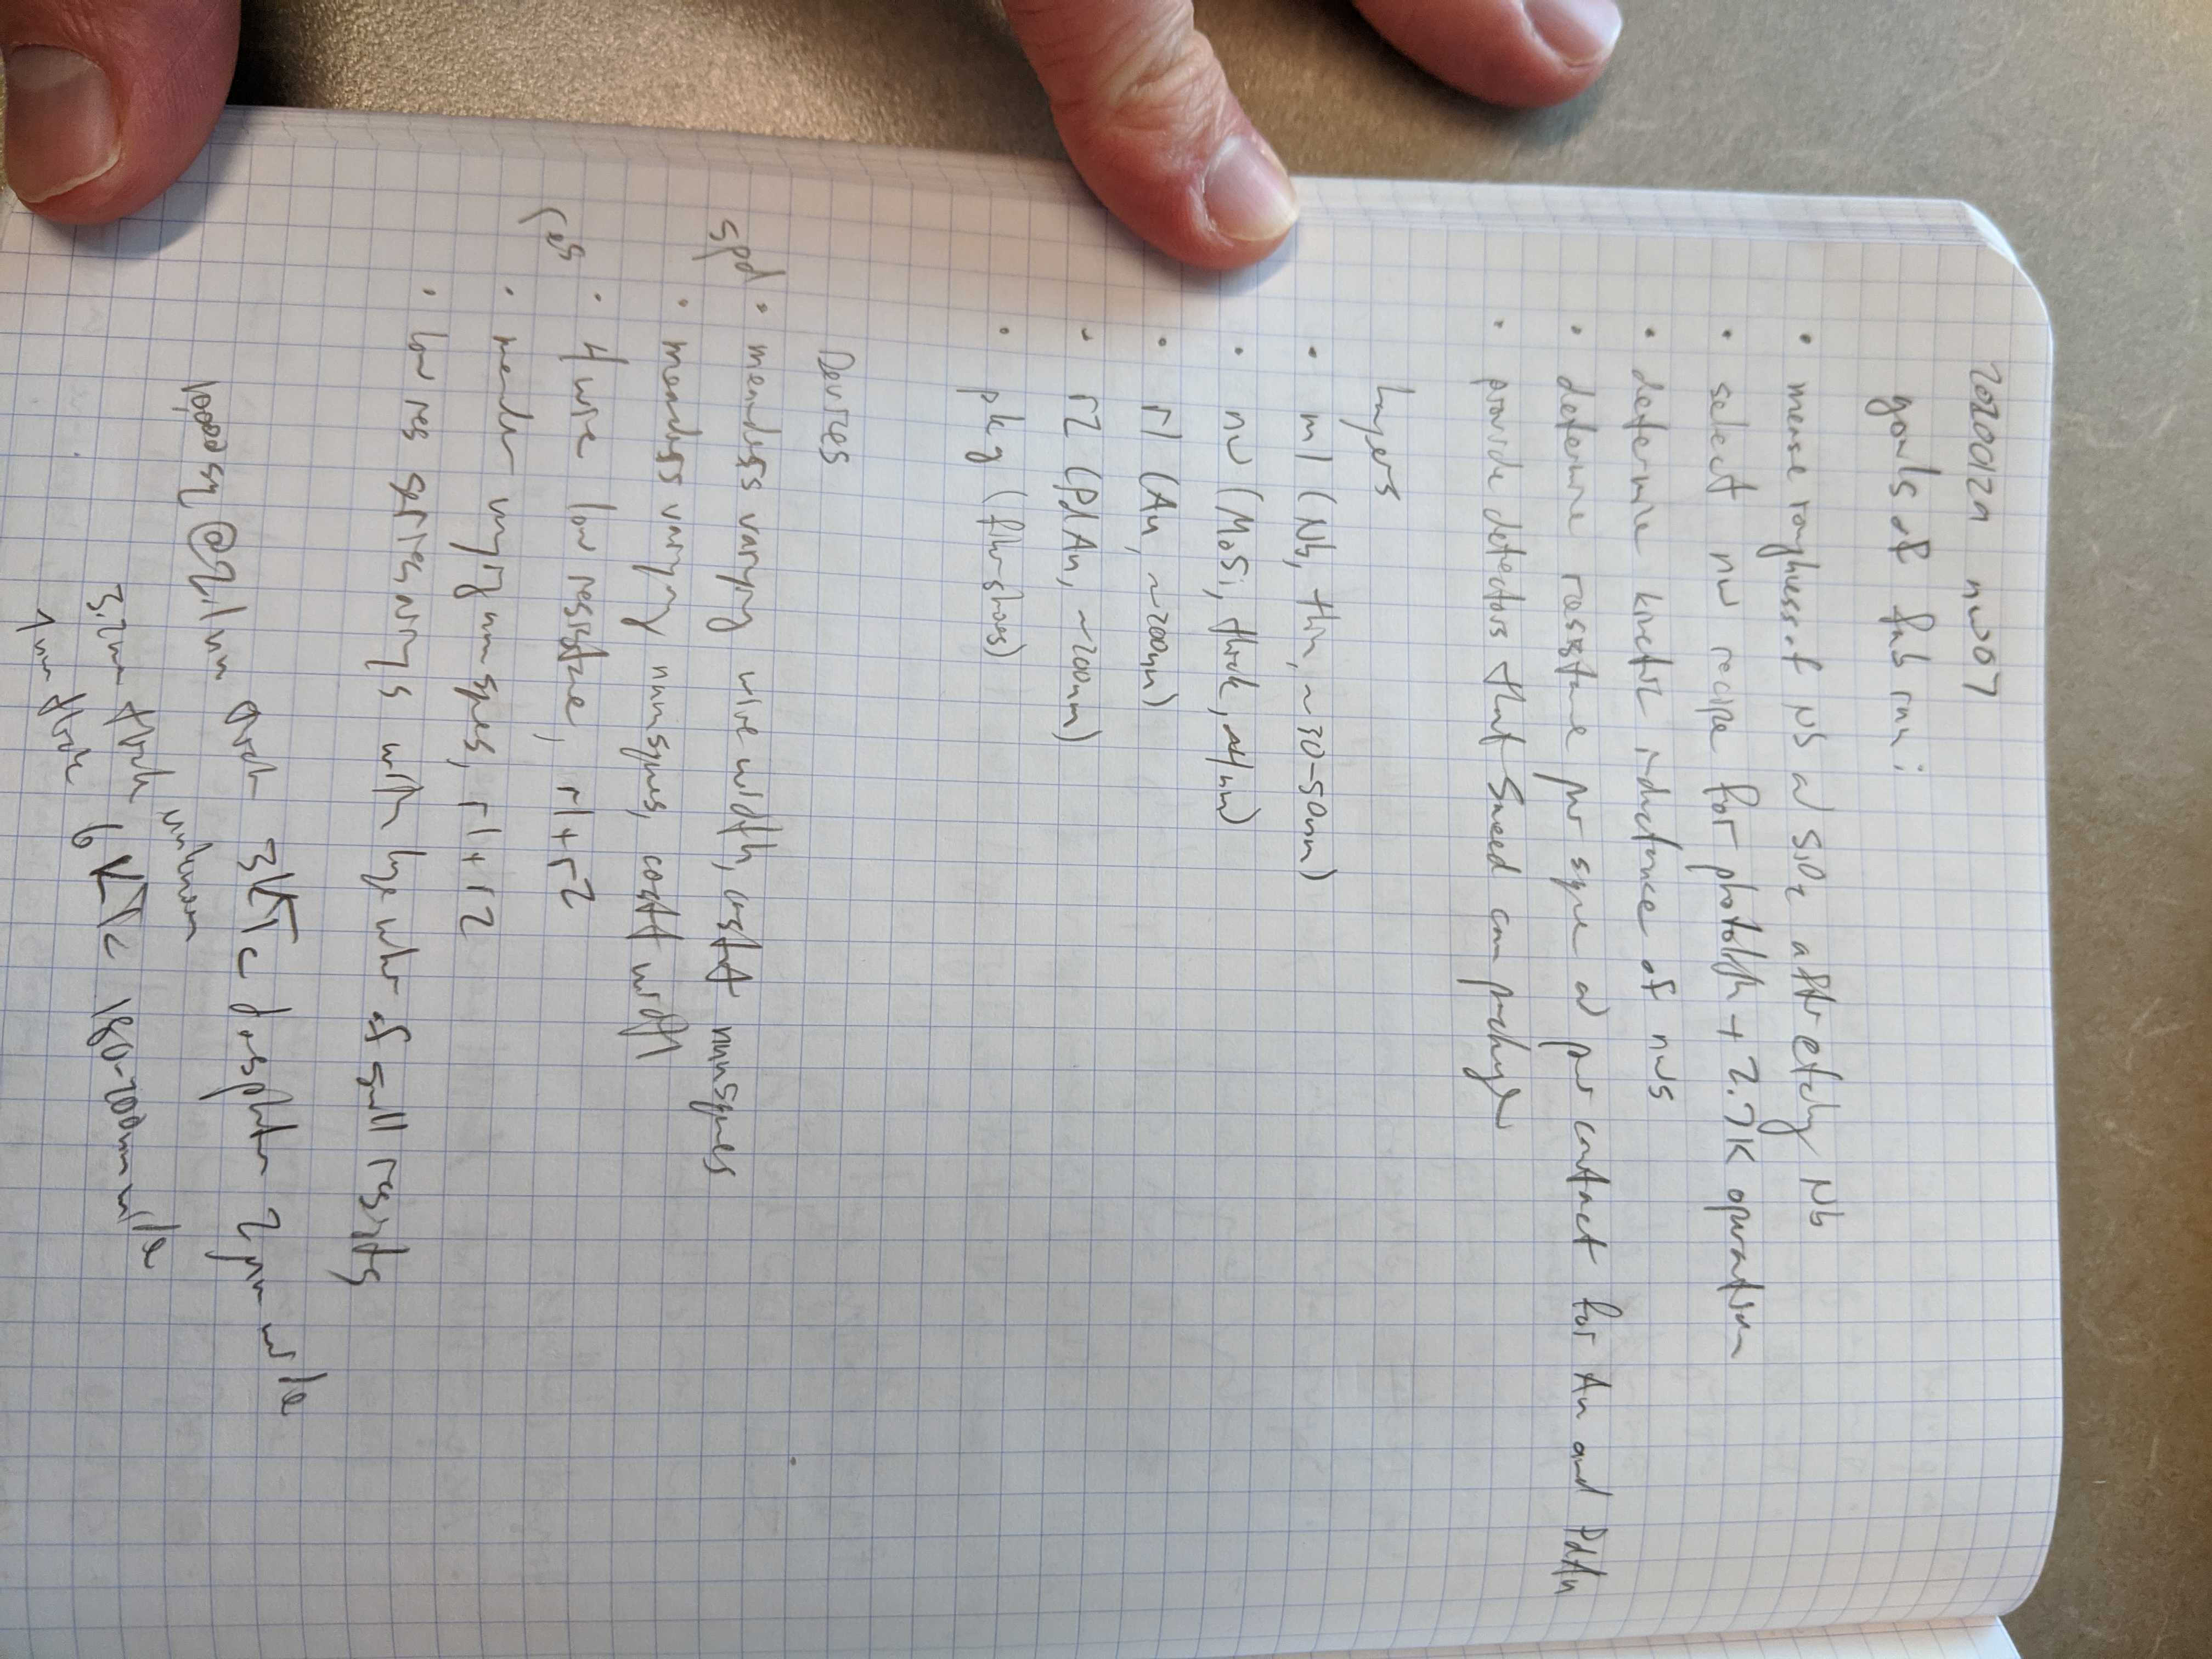 20200121 nw07
goals of fab run:
• measure roughness of Nb and SiO2 after etching Nb
• select nw recipe for photolith + 2.7K operation
• determine kinetic inductance of nws
• determine resistance per square and per contact for Au and PdAu
• provide detectors that Sneed can package
Layers
• m1 (Nb, thin, ~30-50nm)
• nw (MoSi, thick, nm)
• r1 (Au, ~200nm)
• r2 (PdAu, ~200nm)
• pkg (fiber shoes)
Devices
spd • meanders varying wire width, const numsquares
• meanders varying numsquares, const width
res • 4 wire low resistance, r1+r2
• meander varying numsquares, r1+r2
• low res series arrays with large number of small resistors
@2.1nm thick 3K Tc 2µm wide
3.2nm thick unknown
thick 6K Tc 180-200nm wide